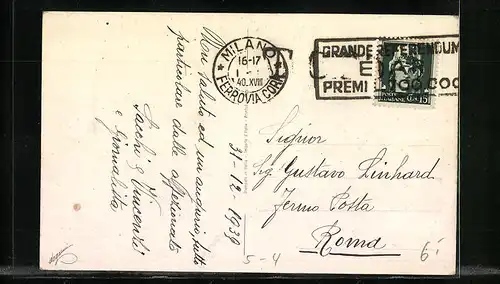 MILANO
16-17
1 - 1
40.XVIII
FERROVIA CORR.
GRANDE REFERENDUM
PREMI L. 100.000
POSTE
ITALIANE C. 15
31-12-1939
Un saluto ed un augurio tutto
particolare dalle affezionate
Sacchi e Vincenti
e Giornalista
Signor
Sig. Gustavo Linhard
Fermo Posta
Roma
5-4
6